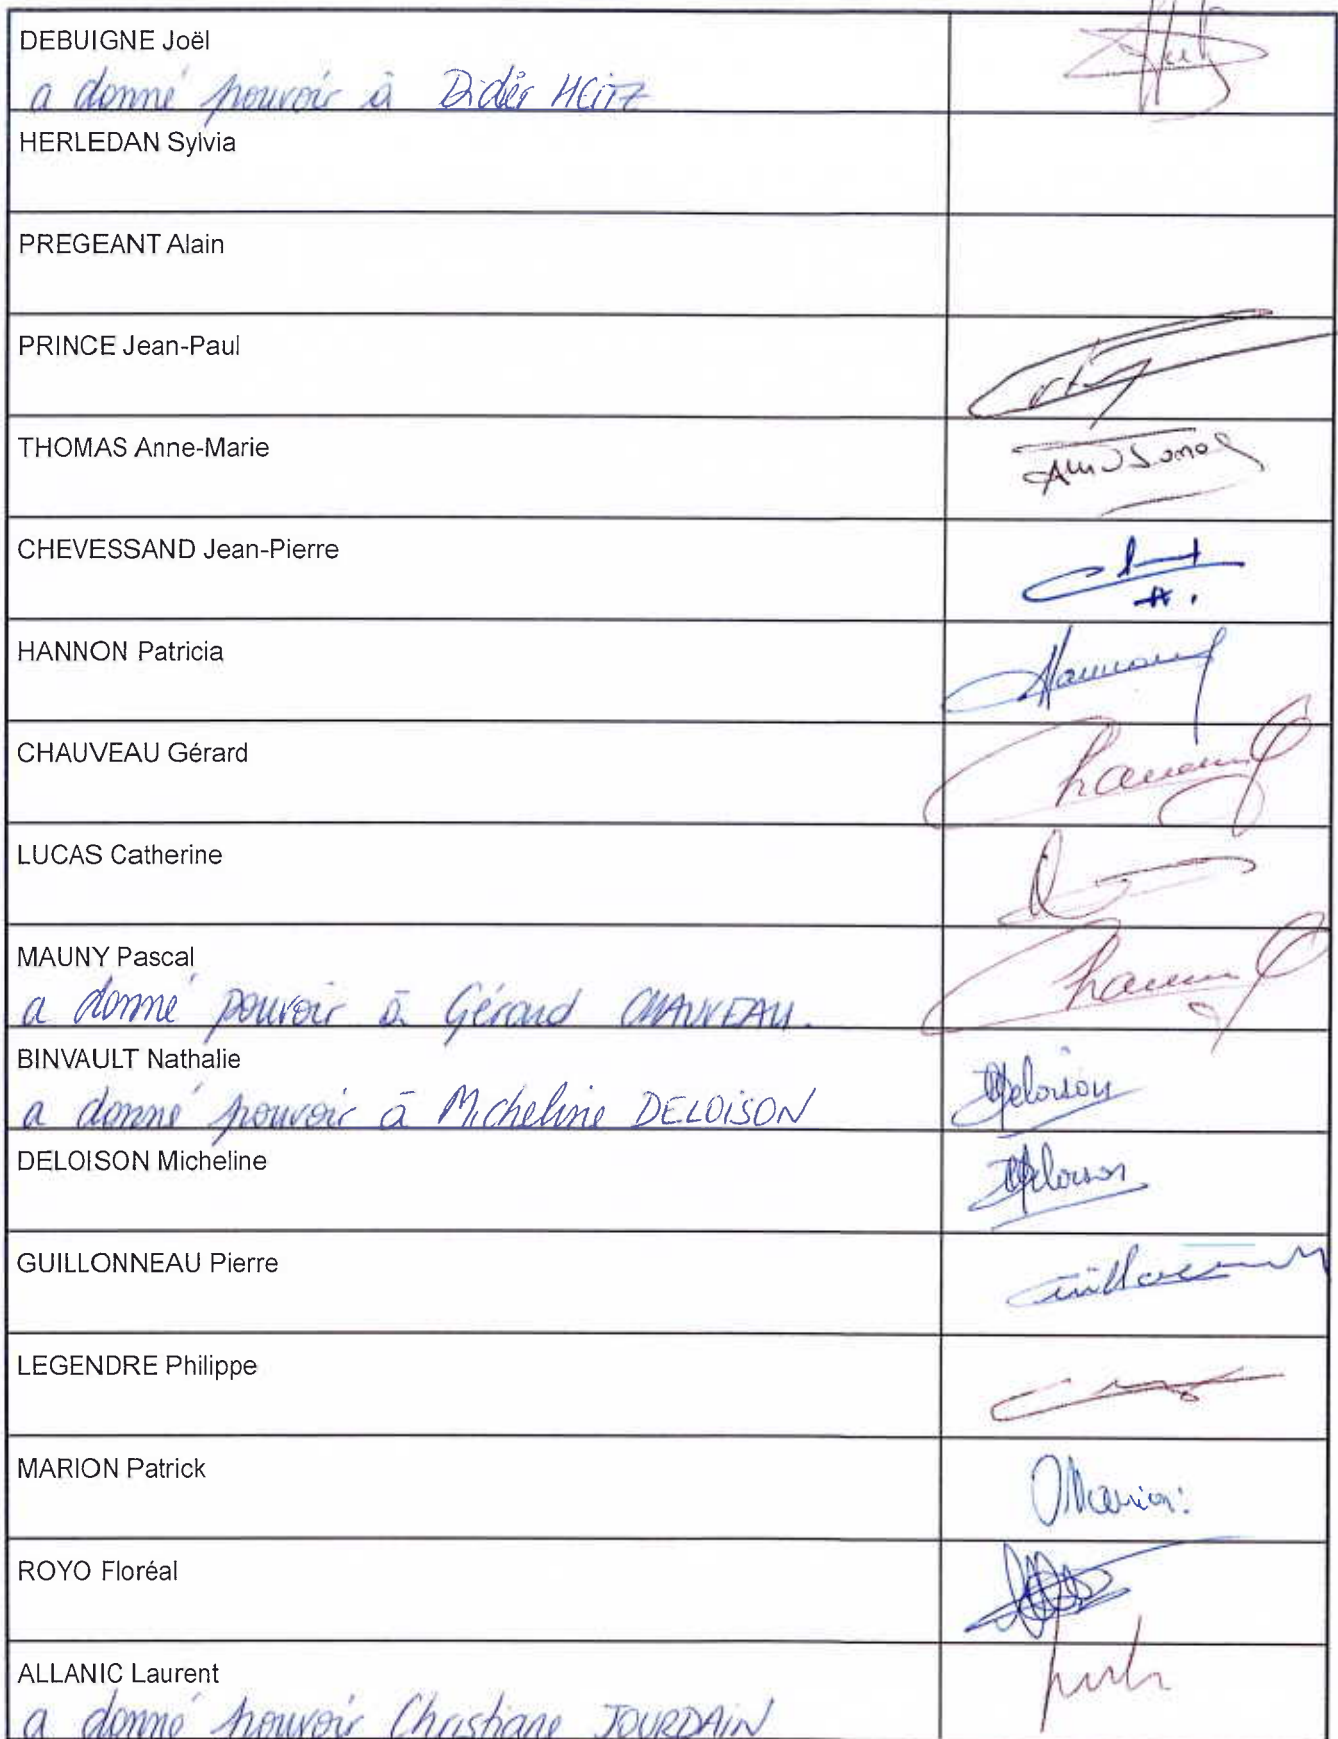 DEBUIGNE Joël
a donné pouvoir à Didier HEITZ
HERLEDAN Sylvia
PREGEANT Alain
PRINCE Jean-Paul
THOMAS Anne-Marie
CHEVESSAND Jean-Pierre
HANNON Patricia
Hannon
CHAUVEAU Gérard
LUCAS Catherine
MAUNY Pascal
a donné pouvoir à Gérard CHAUVEAU.
BINVAULT Nathalie
a donné pouvoir à Micheline DELOISON
Deloison
DELOISON Micheline
Deloison
GUILLONNEAU Pierre
LEGENDRE Philippe
MARION Patrick
Marion
ROYO Floréal
ALLANIC Laurent
a donné pouvoir Christiane JOURDAIN